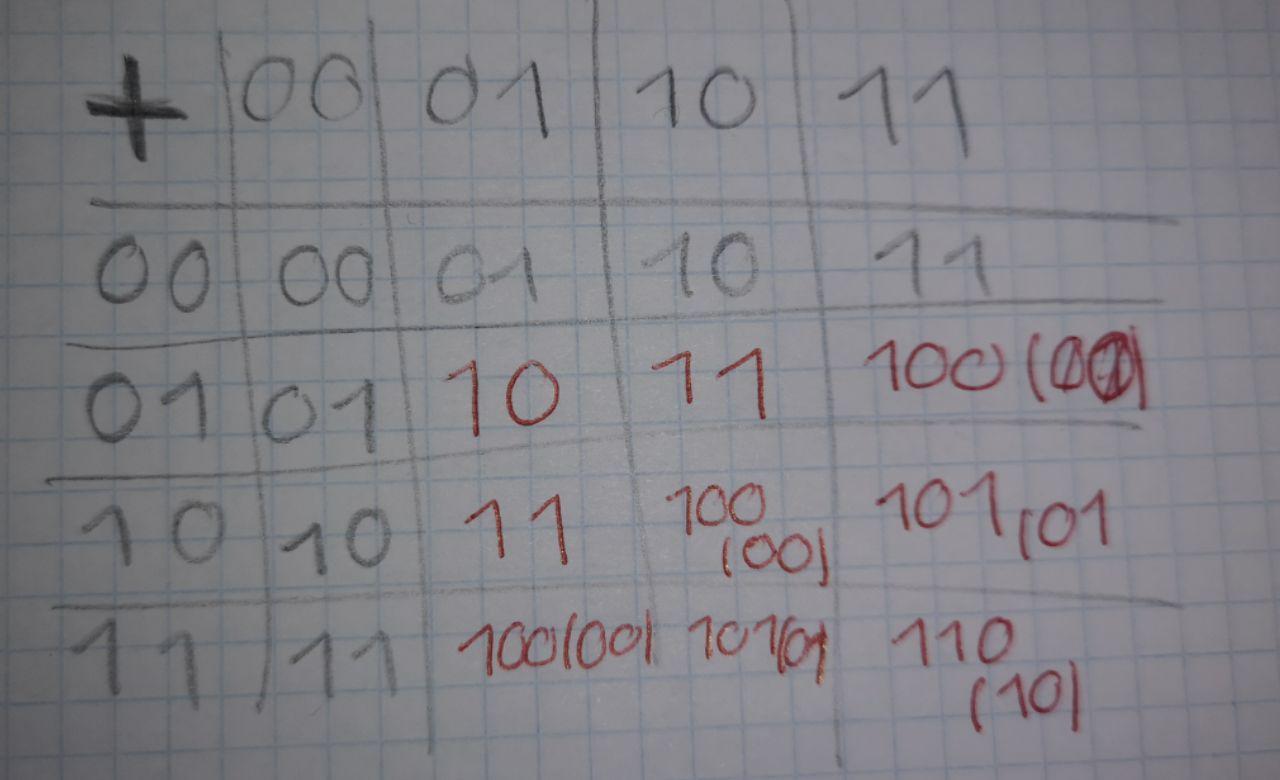 + 00 01 10 11
00 00 01 10 11
01 01 10 11 100 (00)
10 10 11 100 (00) 101 (01
11 11 100(00) 101(01) 110 (10)